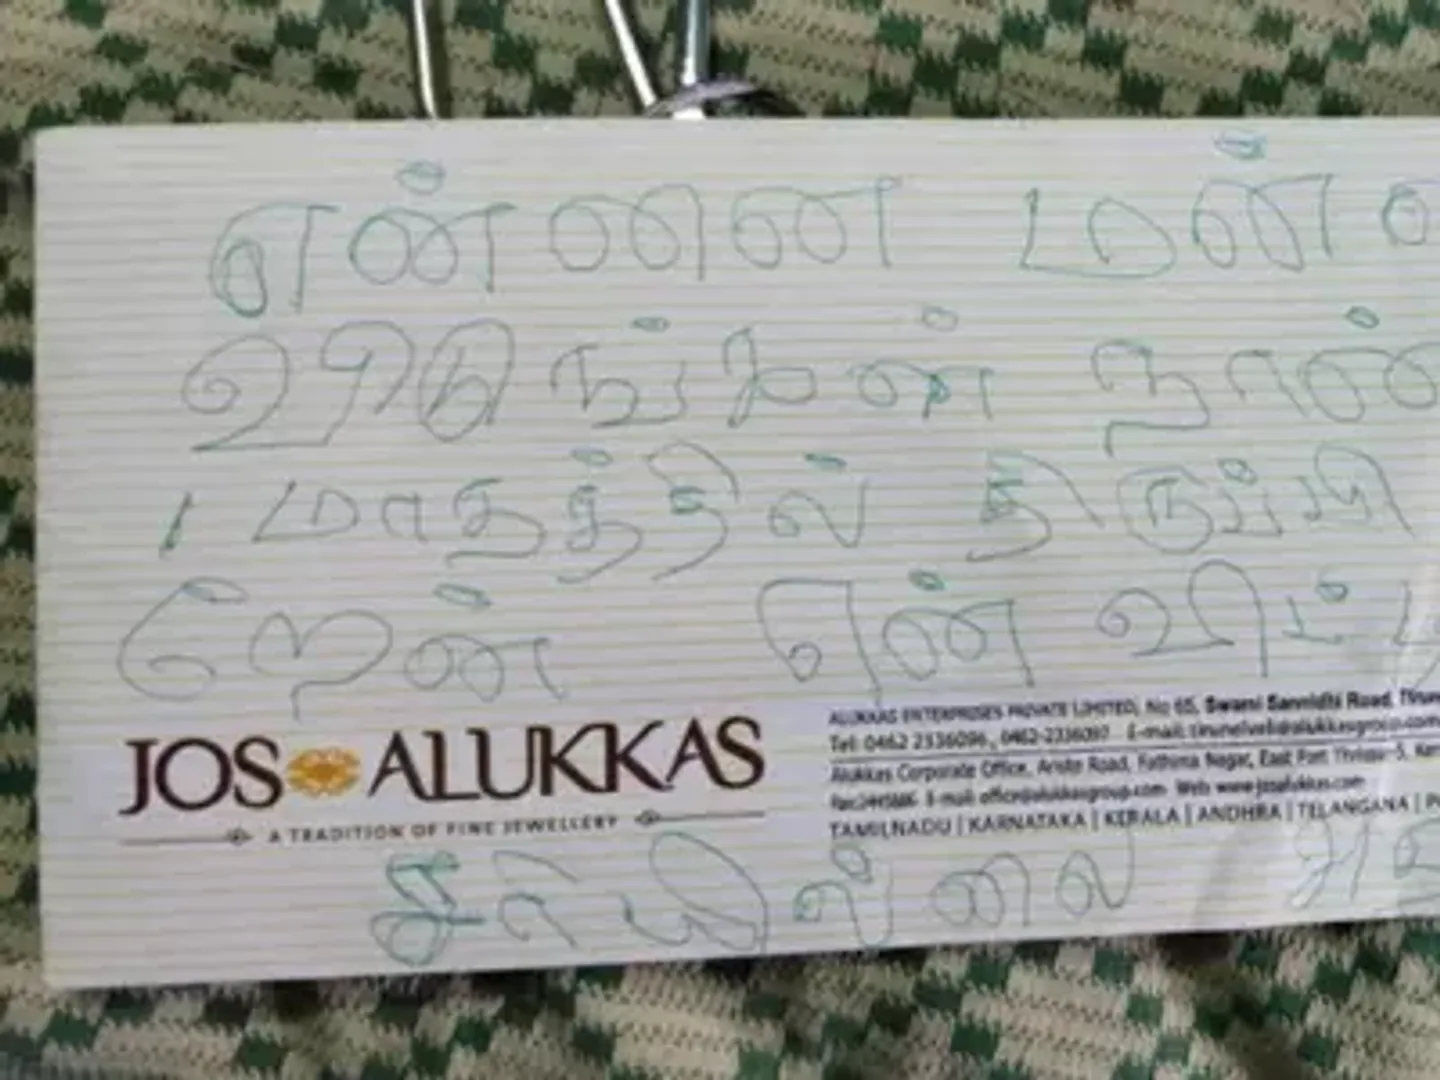 என்னை மன்
விடுங்கள் நான்
1 மாதத்தில் திருப்பி
றேன் என் வீட்டு
JOS ALUKKAS
A TRADITION OF FINE JEWELLERY
ALUKKAS ENTERPRISES PRIVATE LIMITED, No 65, Swami Sannidhi Road,
Tel: 0462 2336096, 0462-2336097 E-mail: tirunelveli@alukkasgroup.com
Alukkas Corporate Office, Aristo Road, Fathima Nagar, East Fort Thrissur-5,
E-mail: office@alukkasgroup.com Web: www.josalukkas.com
TAMILNADU | KARNATAKA | KERALA | ANDHRA | TELANGANA |
சரியில்லை